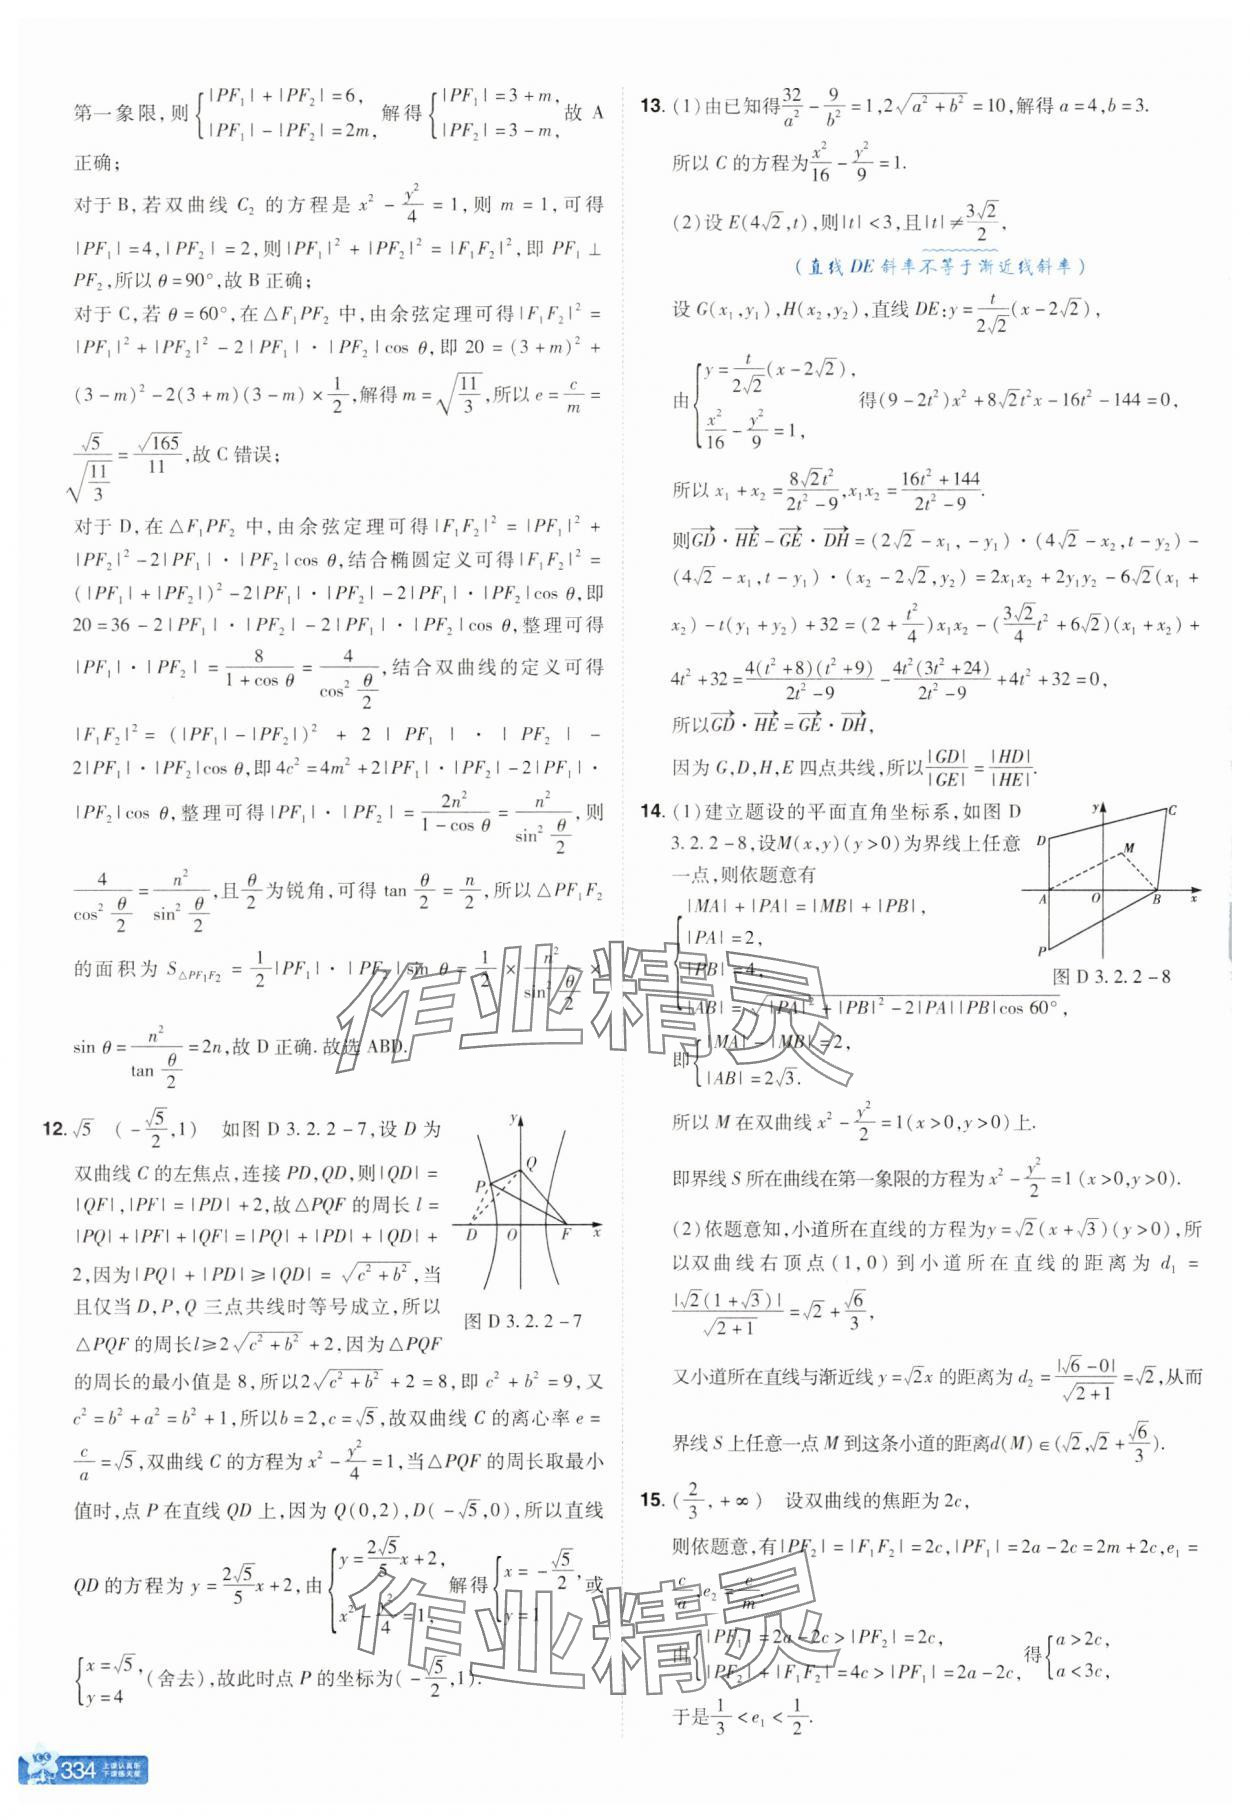 第一象限,则{|PF₁|+|PF₂|=6, |PF₁|-|PF₂|=2m, 解得{|PF₁|=3+m, |PF₂|=3-m, 故 A
正确;
对于 B,若双曲线 C₂ 的方程是 x² - y²/4 = 1,则 m = 1,可得
|PF₁|=4,|PF₂|=2,则|PF₁|²+|PF₂|²=|F₁F₂|²,即 PF₁⊥
PF₂,所以 θ=90°,故 B 正确;
对于 C,若 θ=60°,在△F₁PF₂ 中,由余弦定理可得|F₁F₂|²=
|PF₁|²+|PF₂|²-2|PF₁|·|PF₂|cos θ,即 20=(3+m)²+
(3-m)²-2(3+m)(3-m)×1/2,解得 m=√(11/3),所以 e=c/m=
√5/√(11/3)=√165/11,故 C 错误;
对于 D,在△F₁PF₂ 中,由余弦定理可得|F₁F₂|²=|PF₁|²+
|PF₂|²-2|PF₁|·|PF₂|cos θ,结合椭圆定义可得|F₁F₂|²=
(|PF₁|+|PF₂|)²-2|PF₁|·|PF₂|-2|PF₁|·|PF₂|cos θ,即
20=36-2|PF₁|·|PF₂|-2|PF₁|·|PF₂|cos θ,整理可得
|PF₁|·|PF₂|=8/(1+cos θ)=4/cos²(θ/2),结合双曲线的定义可得
|F₁F₂|²=(|PF₁|-|PF₂|)²+2|PF₁|·|PF₂|-
2|PF₁|·|PF₂|cos θ,即 4c²=4m²+2|PF₁|·|PF₂|-2|PF₁|·
|PF₂|cos θ,整理可得|PF₁|·|PF₂|=2n²/(1-cos θ)=n²/sin²(θ/2),则
4/cos²(θ/2)=n²/sin²(θ/2),且θ/2为锐角,可得 tan θ/2=n/2,所以△PF₁F₂
的面积为 S△PF₁F₂=1/2|PF₁|·|PF₂|sin θ=1/2×n²/sin²(θ/2)×
sin θ=n²/tan(θ/2)=2n,故 D 正确.故选 ABD.
12. √5 (-√5/2,1) 如图 D 3.2.2-7,设 D 为
双曲线 C 的左焦点,连接 PD,QD,则|QD|=
|QF|,|PF|=|PD|+2,故△PQF 的周长 l=
|PQ|+|PF|+|QF|=|PQ|+|PD|+|QD|+
2,因为|PQ|+|PD|≥|QD|=√(c²+b²),当
且仅当 D,P,Q 三点共线时等号成立,所以
△PQF 的周长l≥2√(c²+b²)+2,因为△PQF
y
Q
P
D
O
F
x
图 D 3.2.2-7
的周长的最小值是 8,所以2√(c²+b²)+2=8,即 c²+b²=9,又
c²=b²+a²=b²+1,所以b=2,c=√5,故双曲线 C 的离心率 e=
c/a=√5,双曲线 C 的方程为 x²-y²/4=1,当△PQF 的周长取最小
值时,点 P 在直线 QD 上,因为 Q(0,2),D(-√5,0),所以直线
QD 的方程为 y=2√5/5x+2,由{y=2√5/5x+2, x²-y²/4=1, 解得{x=-√5/2, y=1 或
{x=√5, y=4 (舍去),故此时点 P 的坐标为(-√5/2,1).
334
上课认真听
下课练天星
13. (1)由已知得32/a²-9/b²=1,2√(a²+b²)=10,解得 a=4,b=3.
所以 C 的方程为x²/16-y²/9=1.
(2)设 E(4√2,t),则|t|<3,且|t|≠3√2/2,
(直线 DE 斜率不等于渐近线斜率)
设 G(x₁,y₁),H(x₂,y₂),直线 DE:y=t/(2√2)(x-2√2),
由{y=t/(2√2)(x-2√2), x²/16-y²/9=1, 得(9-2t²)x²+8√2t²x-16t²-144=0,
所以 x₁+x₂=8√2t²/(2t²-9),x₁x₂=(16t²+144)/(2t²-9).
则GD→·HE→-GE→·DH→=(2√2-x₁,-y₁)·(4√2-x₂,t-y₂)-
(4√2-x₁,t-y₁)·(x₂-2√2,y₂)=2x₁x₂+2y₁y₂-6√2(x₁+
x₂)-t(y₁+y₂)+32=(2+t²/4)x₁x₂-(3√2/4t²+6√2)(x₁+x₂)+
4t²+32=4(t²+8)(t²+9)/(2t²-9)-4t²(3t²+24)/(2t²-9)+4t²+32=0,
所以GD→·HE→=GE→·DH→,
因为 G,D,H,E 四点共线,所以|GD|/|GE|=|HD|/|HE|.
14. (1)建立题设的平面直角坐标系,如图 D
3.2.2-8,设M(x,y)(y>0)为界线上任意
一点,则依题意有
{|MA|+|PA|=|MB|+|PB|,
|PA|=2,
|PB|=4,
|AB|=√(|PA|²+|PB|²-2|PA||PB|cos 60°),
即{|MA|-|MB|=2, |AB|=2√3.
y
C
D
M
A
O
B
x
P
图 D 3.2.2-8
所以 M 在双曲线 x²-y²/2=1(x>0,y>0)上.
即界线 S 所在曲线在第一象限的方程为 x²-y²/2=1(x>0,y>0).
(2)依题意知,小道所在直线的方程为y=√2(x+√3)(y>0),所
以双曲线右顶点(1,0)到小道所在直线的距离为 d₁=
|√2(1+√3)|/√(2+1)=√2+√6/3,
又小道所在直线与渐近线 y=√2x 的距离为 d₂=|√6-0|/√(2+1)=√2,从而
界线 S 上任意一点 M 到这条小道的距离d(M)∈(√2,√2+√6/3).
15. (2/3,+∞) 设双曲线的焦距为 2c,
则依题意,有|PF₂|=|F₁F₂|=2c,|PF₁|=2a-2c=2m+2c,e₁=
c/a,e₂=c/m.
由{|PF₁|=2a-2c>|PF₂|=2c, |PF₂|+|F₁F₂|=4c>|PF₁|=2a-2c, 得{a>2c, a<3c,
于是1/3<e₁<1/2.
作业精灵
作业精灵